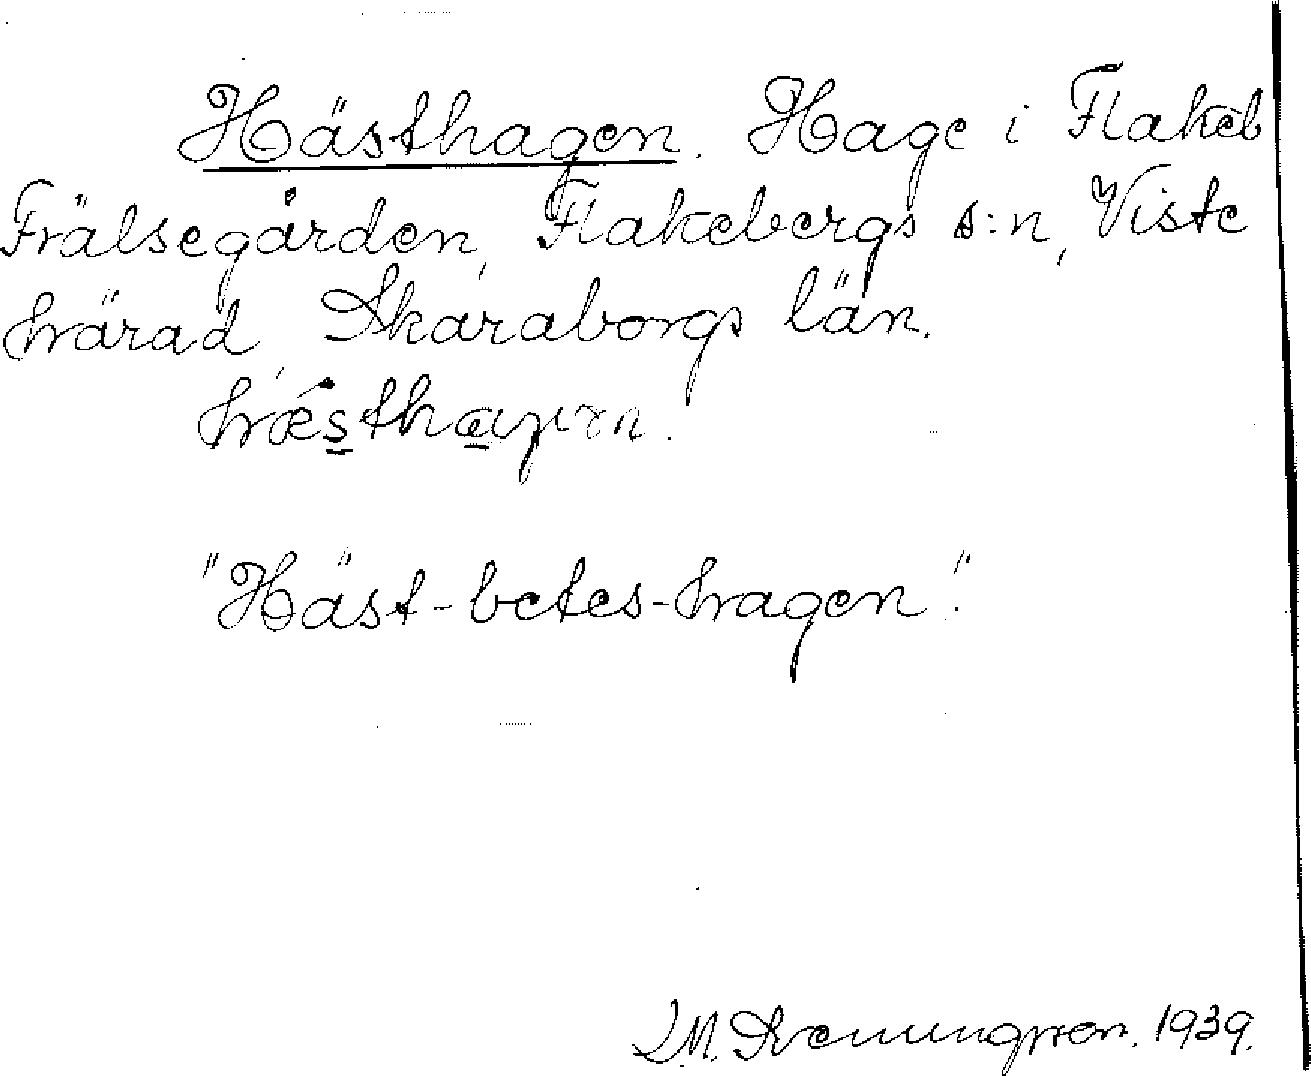 Hästhagen. Hage i Flakeb
Frälsegården, Flakebergs s:n, Viste
härad, Skaraborgs län.
"Häst-betes-hagen".
1939.